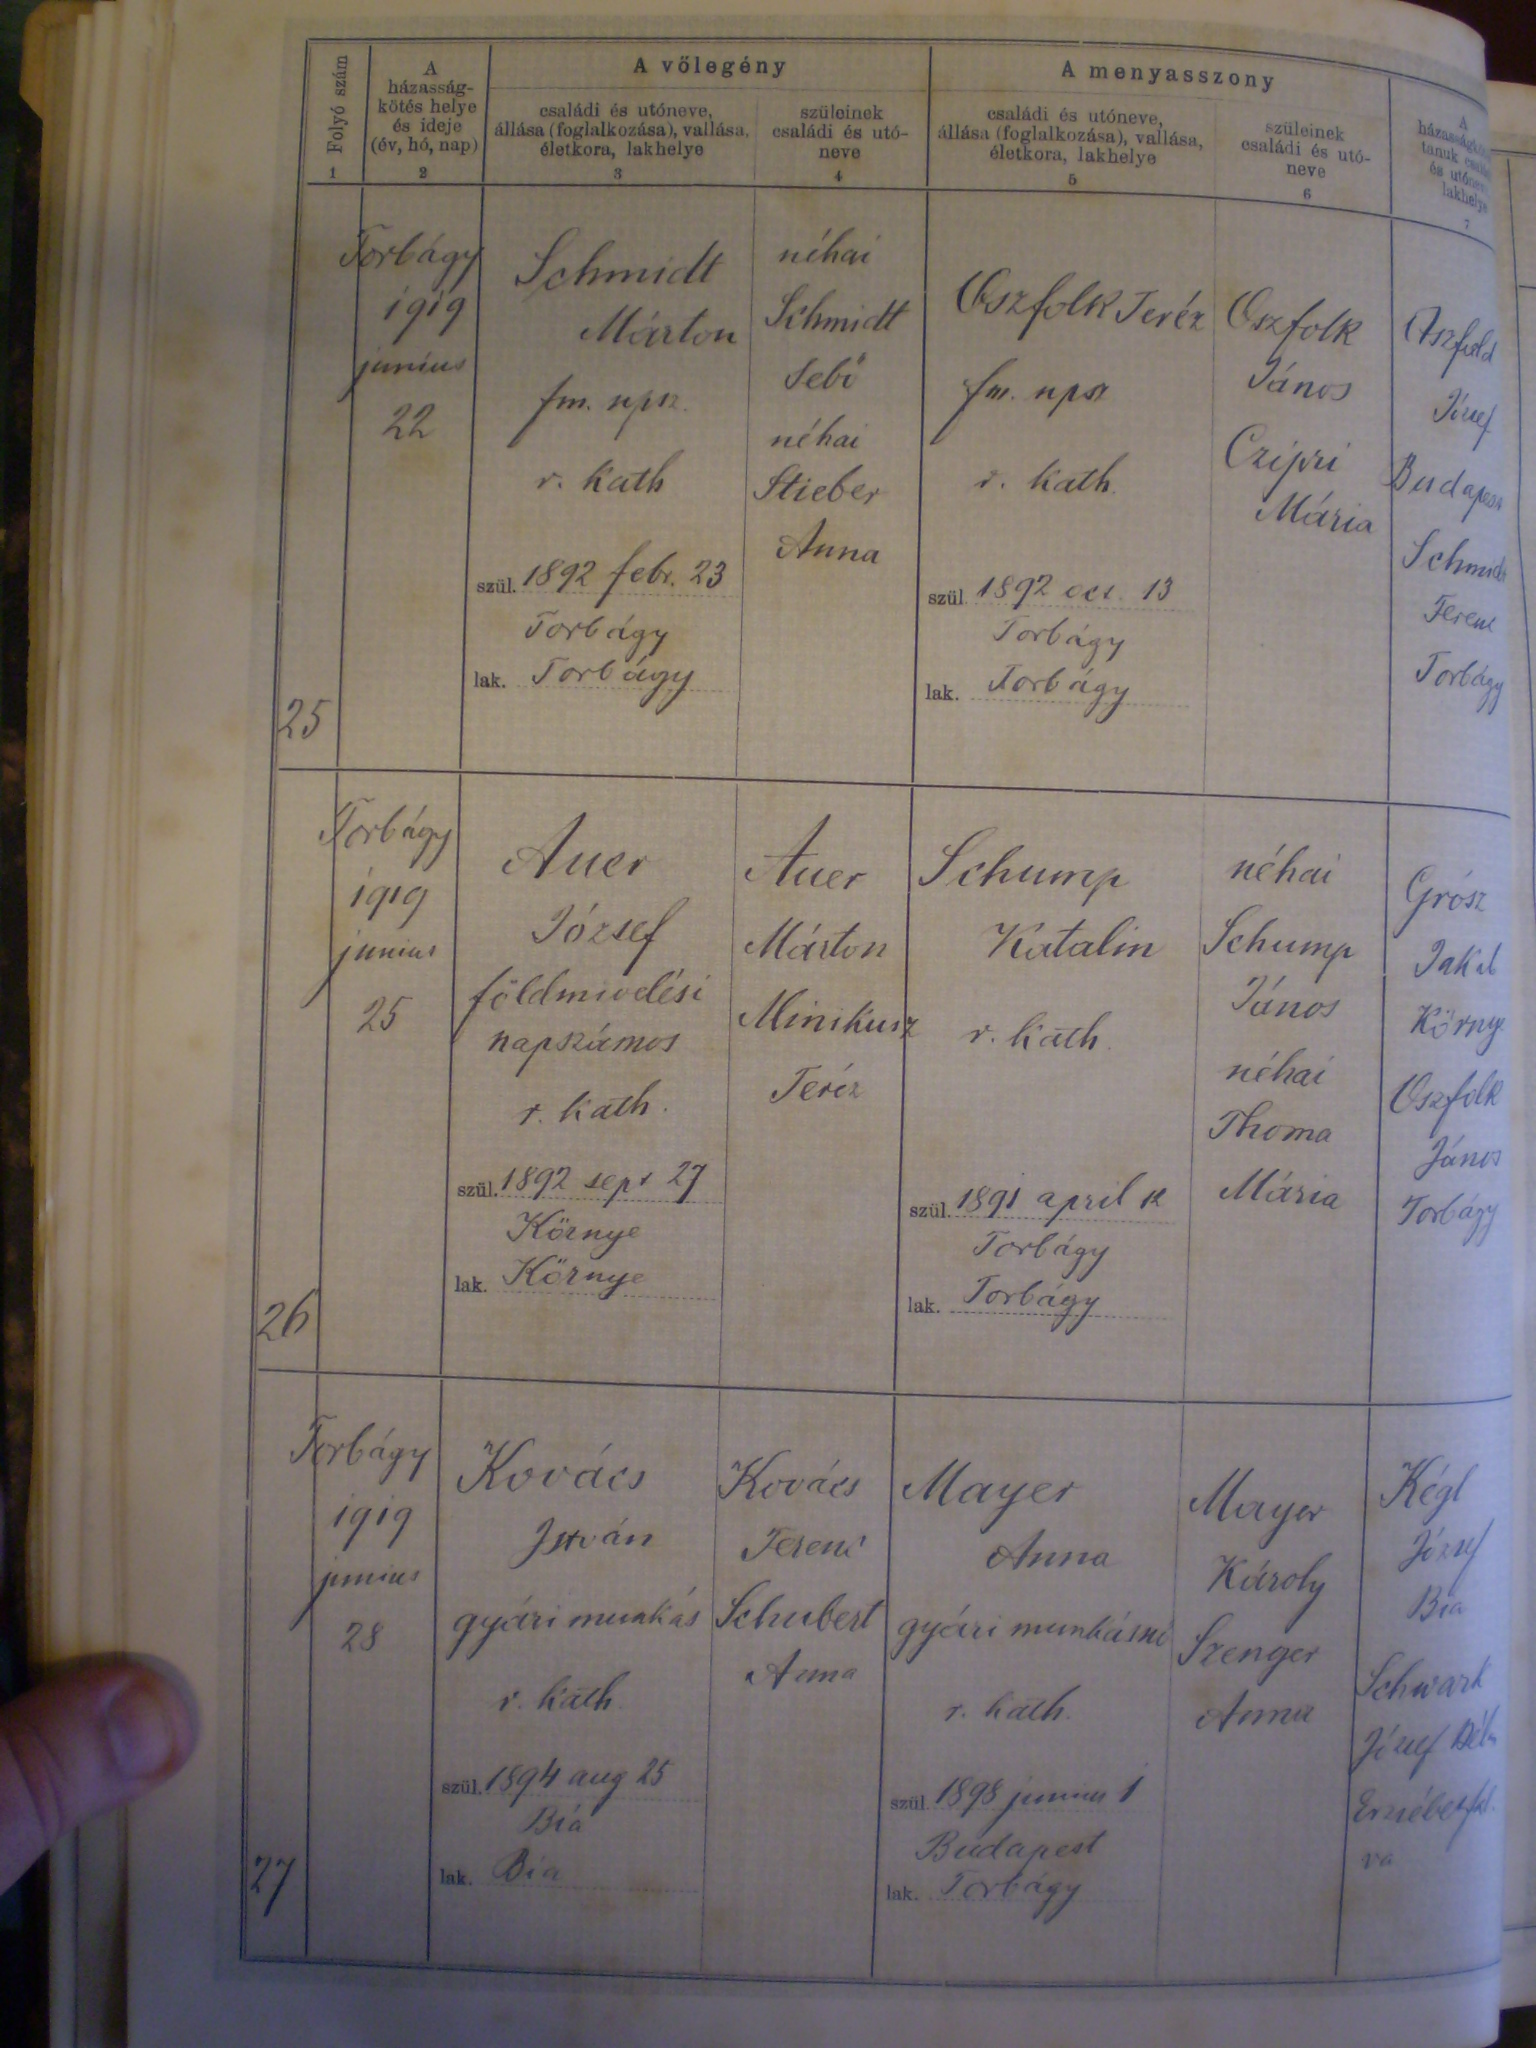 Folyó szám
A
házasság-
kötés helye
és ideje
(év, hó, nap)
A vőlegény
családi és utóneve,
állása (foglalkozása), vallása,
életkora, lakhelye
szüleinek
családi és utó-
neve
A menyasszony
családi és utóneve,
állása (foglalkozása), vallása,
életkora, lakhelye
szüleinek
családi és utó-
neve
A
tanuk
lakhelye
1 2 3 4 5 6 7
25
Torbágy
1919
junius
22
Schmidt
Márton
fm. npsz.
r. kath
szül. 1892 febr. 23
Torbágy
lak. Torbágy
néhai
Schmidt
Sebő
néhai
Stieber
Anna
Oszfolk Teréz
fm. npsz
r. kath.
szül. 1892 oct. 13
Torbágy
lak. Torbágy
Oszfolk
János
Czipri
Mária
József
Schmidt
Ferenc
Torbágy
26
Torbágy
1919
junius
25
Auer
József
földmivelési
napszámos
r. kath.
szül. 1892 sept 27
Környe
lak. Környe
Auer
Márton
Minikusz
Teréz
Schump
Katalin
r. kath.
szül. 1891 april 12
Torbágy
lak. Torbágy
néhai
Schump
János
néhai
Thoma
Mária
Grósz
Környe
Oszfolk
János
Torbágy
27
Torbágy
1919
junius
28
Kovács
István
gyári munkás
r. kath.
szül. 1894 aug 25
Bia
lak. Bia
Kovács
Ferenc
Schubert
Anna
Mayer
Anna
gyári munkásnő
r. kath.
szül. 1898 junius 1
Budapest
lak. Torbágy
Mayer
Károly
Szenger
Anna
Kégl
József
Bia
Schwark
József